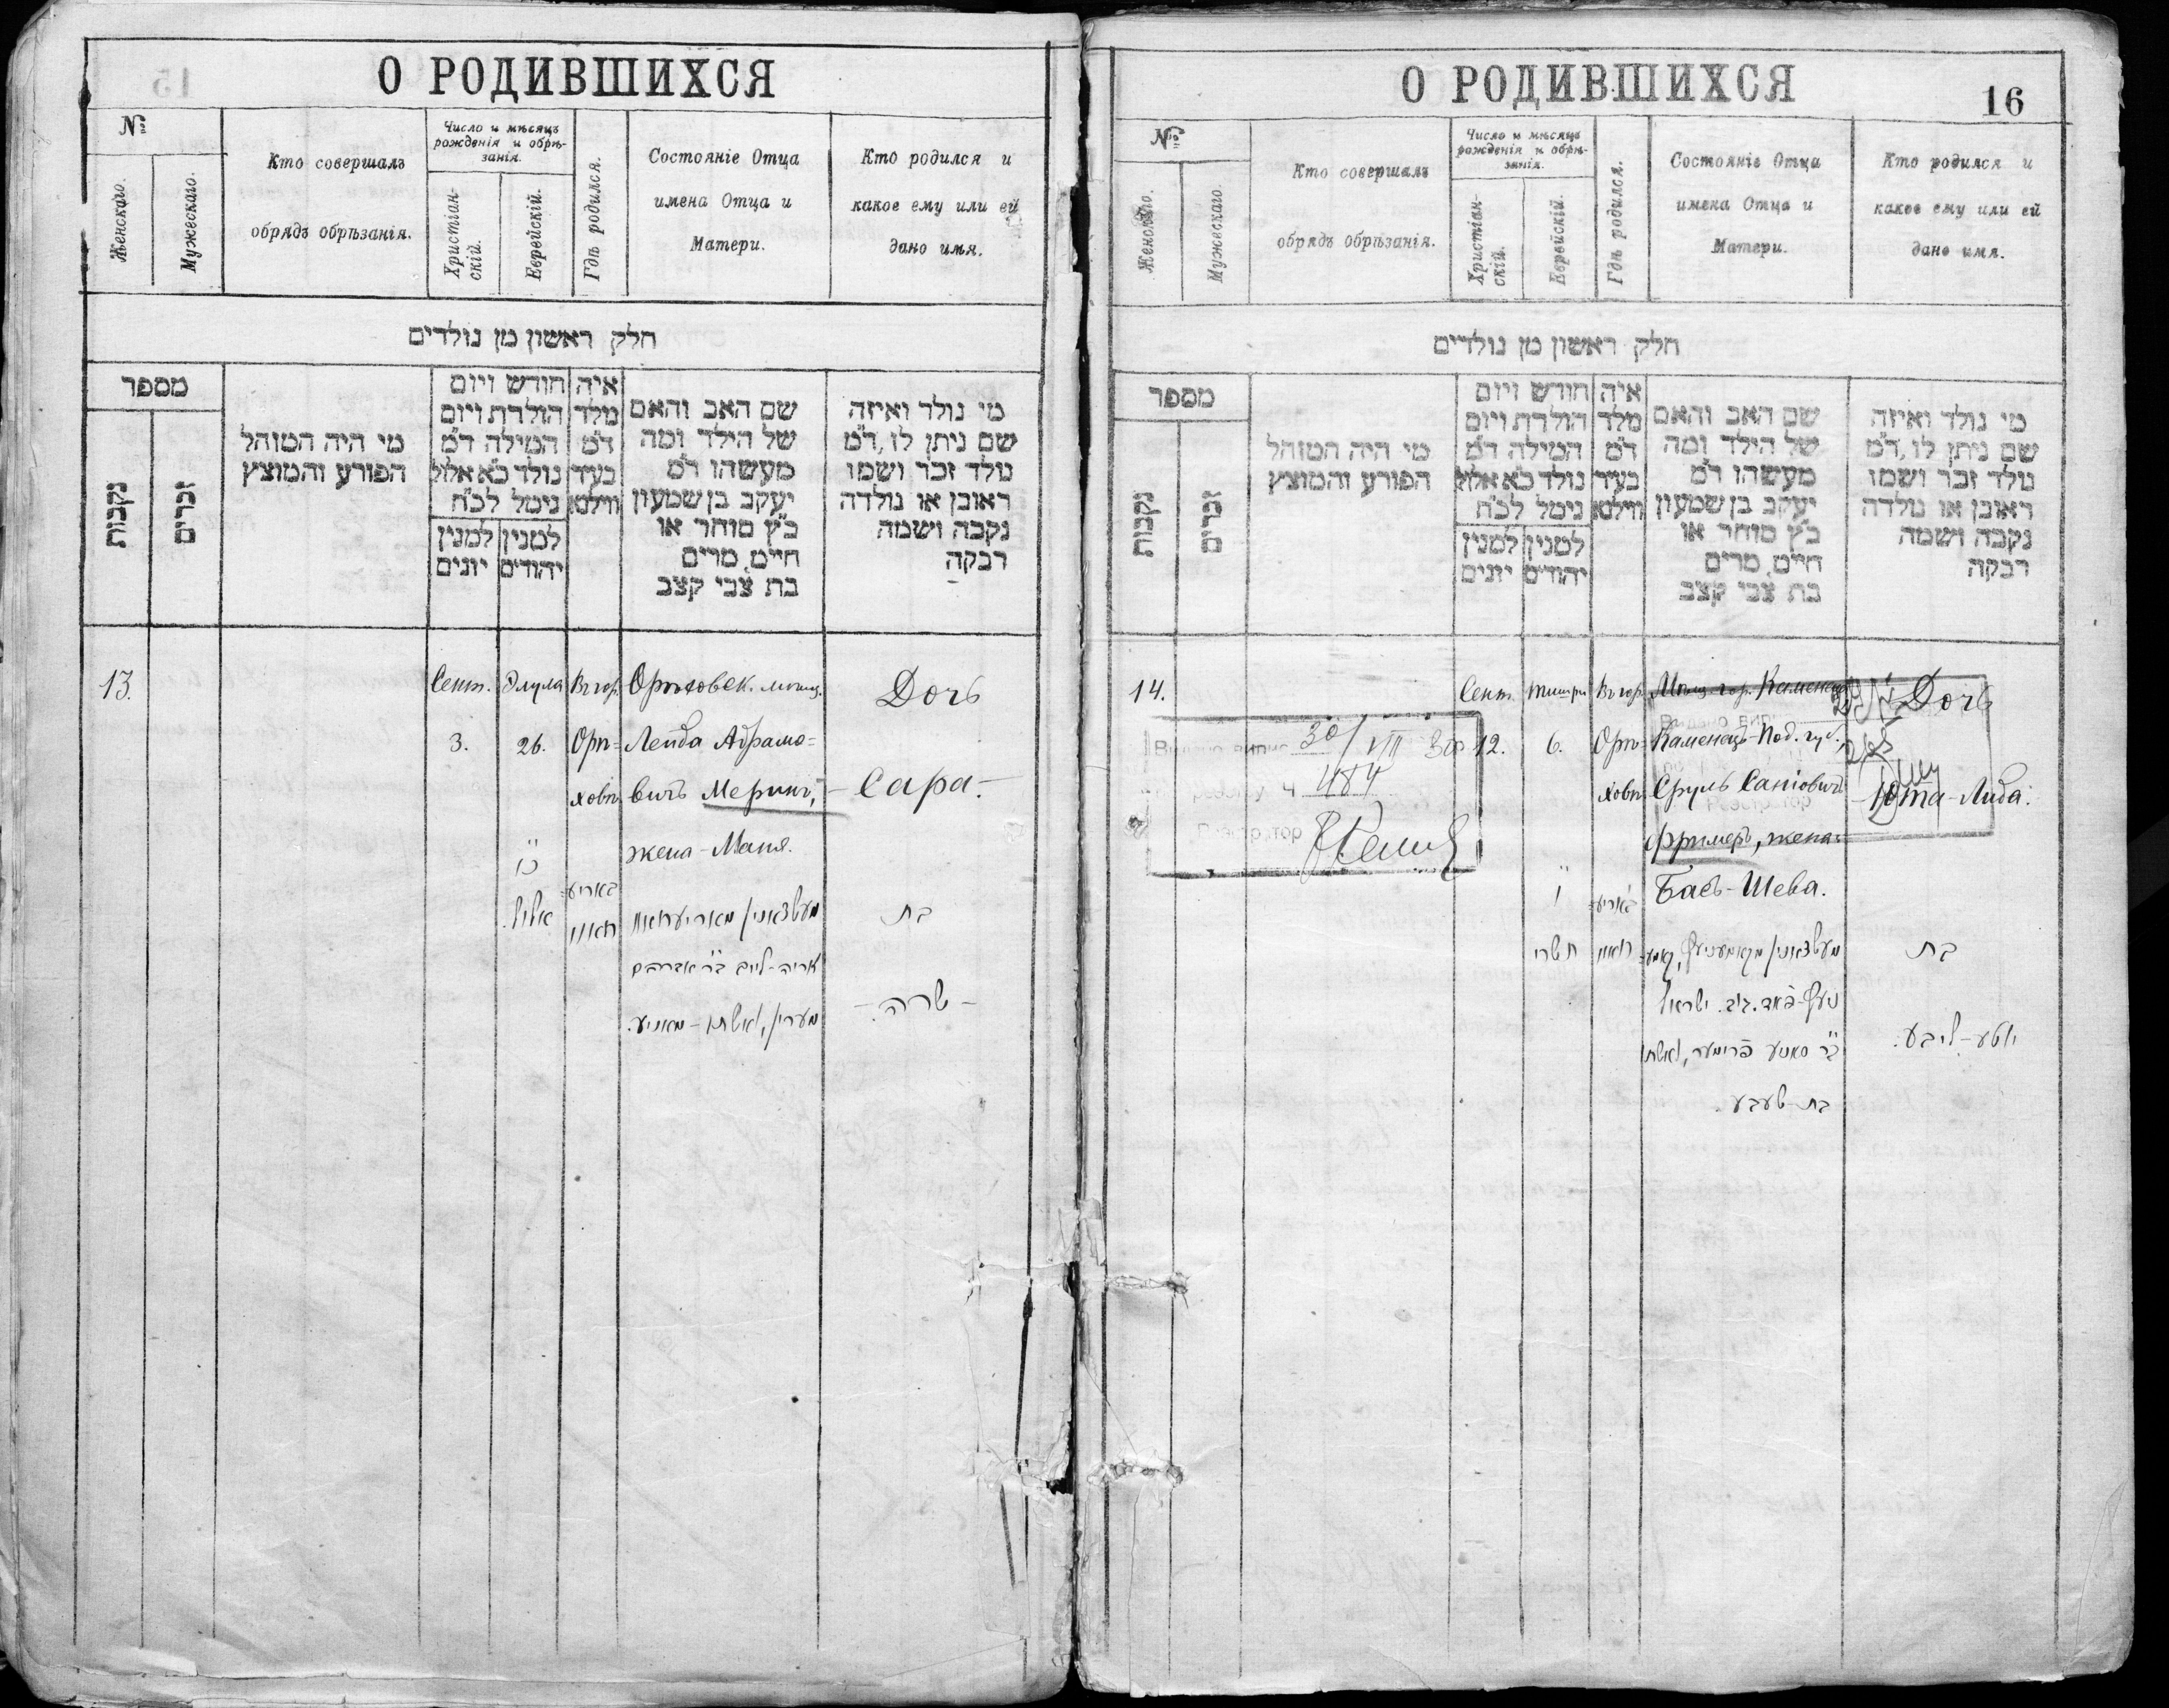 О РОДИВШИХСЯ
№
Женскаго.
Мужескаго.
Кто совершалъ
обрядъ обрѣзанія.
Число и мѣсяцъ
рожденія и обрѣ-
занія.
Христіан-
скій.
Еврейскій.
Гдѣ родился.
Состояніе Отца
имена Отца и
Матери.
Кто родился и
какое ему или ей
дано имя.
חלק ראשון מן נולדים
מספר
נקבות
זכרים
מי היה המוהל
הפורע והמוצץ
חודש ויום
הולדת ויום
המילה ד״מ
נולד כ״א אלול
נימל לכ״ח
למנין
יהודים
למנין
יונים
איה
מלד
ד״מ
בעיר
ווילנא
שם האב והאם
של הילד ומה
מעשהו ד״מ
יעקב בן שמעון
כ״ץ סוחר או
חיים, מרים
בת צבי קצב
מי נולד ואיזה
שם ניתן לו, ד״מ
מלד זכר ושמו
ראובן או נולדה
נקבה ושמה
רבקה
13.
Сент.
3.
Элула
26.
כ״ו
אלול.
Въ гор.
Орг-
ховѣ
באריע
חאוו
Орховск. мѣщ.
Лейба Абрамо-
вичъ Меринъ,
жена-Маня.
מעשצאנין מאריעחאוו
אריה-לייב ב״ר אברהם
מערין, ואשתו-מאניע.
Дочь
-Сара.-
בת
-שרה.-
О РОДИВШИХСЯ
16
№
Женскаго.
Мужескаго.
Кто совершалъ
обрядъ обрѣзанія.
Число и мѣсяцъ
рожденія и обрѣ-
занія.
Христіан-
скій.
Еврейскій.
Гдѣ родился.
Состояніе Отца
имена Отца и
Матери.
Кто родился и
какое ему или ей
дано имя.
חלק ראשון מן נולדים
מספר
נקבות
זכרים
מי היה המוהל
הפורע והמוצץ
חודש ויום
הולדת ויום
המילה ד״מ
נולד כ״א אלול
נימל לכ״ח
למנין
יהודים
למנין
יונים
איה
מלד
ד״מ
בעיר
ווילנא
שם האב והאם
של הילד ומה
מעשהו ד״מ
יעקב בן שמעון
כ״ץ סוחר או
חיים, מרים
בת צבי קצב
מי נולד ואיזה
שם ניתן לו, ד״מ
מלד זכר ושמו
ראובן או נולדה
נקבה ושמה
רבקה
14.
Видано випис 30/VIII 30
ч 484
Реєстратор
Сент.
12.
Тишри
6.
ו
תשרי
Въ гор.
Орг-
ховѣ
באריע
חאוו
Мѣщ. гор. Каменец
Каменецъ-Под. губ.,
Сруль Саніовичъ
Фримеръ, жена-
Басъ-Шева.
ב״ר סאניע פרימער, ואשתו
בת-שעבע.
Дочь
-Юта-Либа.
בת
יוטע-ליבע.